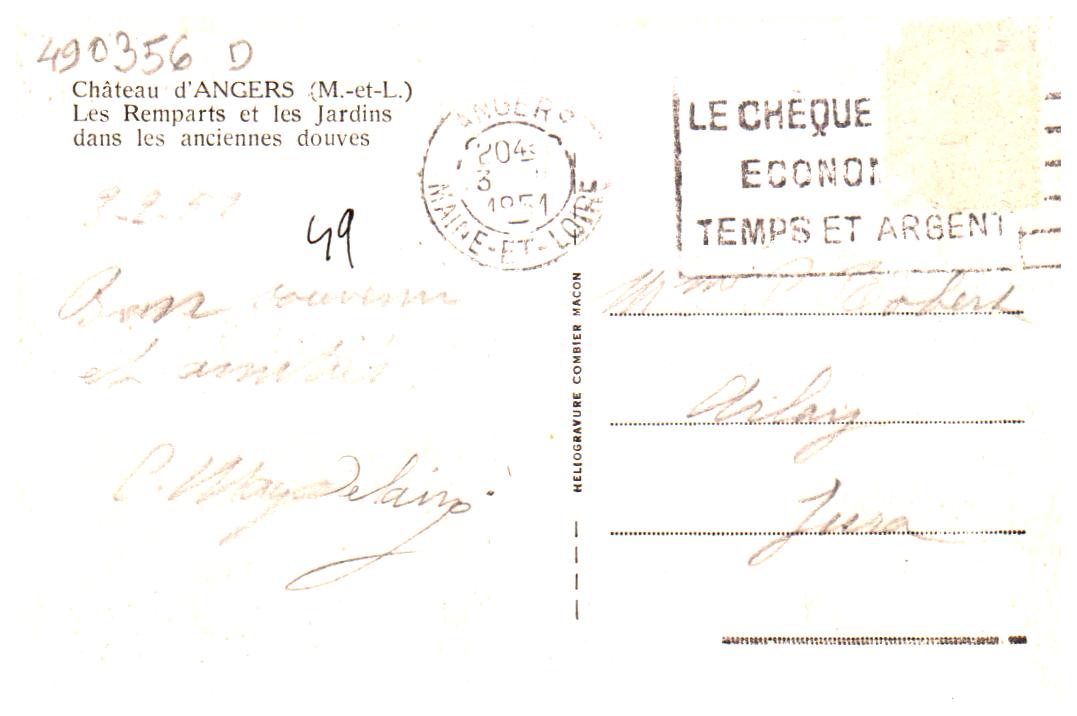 490356 D
Château d'ANGERS (M.-et-L.)
Les Remparts et les Jardins
dans les anciennes douves
ANGERS
20H
3
1951
MAINE-ET-LOIRE
LE CHÈQUE
ECONO
TEMPS ET ARGENT
49
Bon souvenir
et amitiés
HELIOGRAVURE COMBIER MACON
Mme Robert
Arlay
Jura